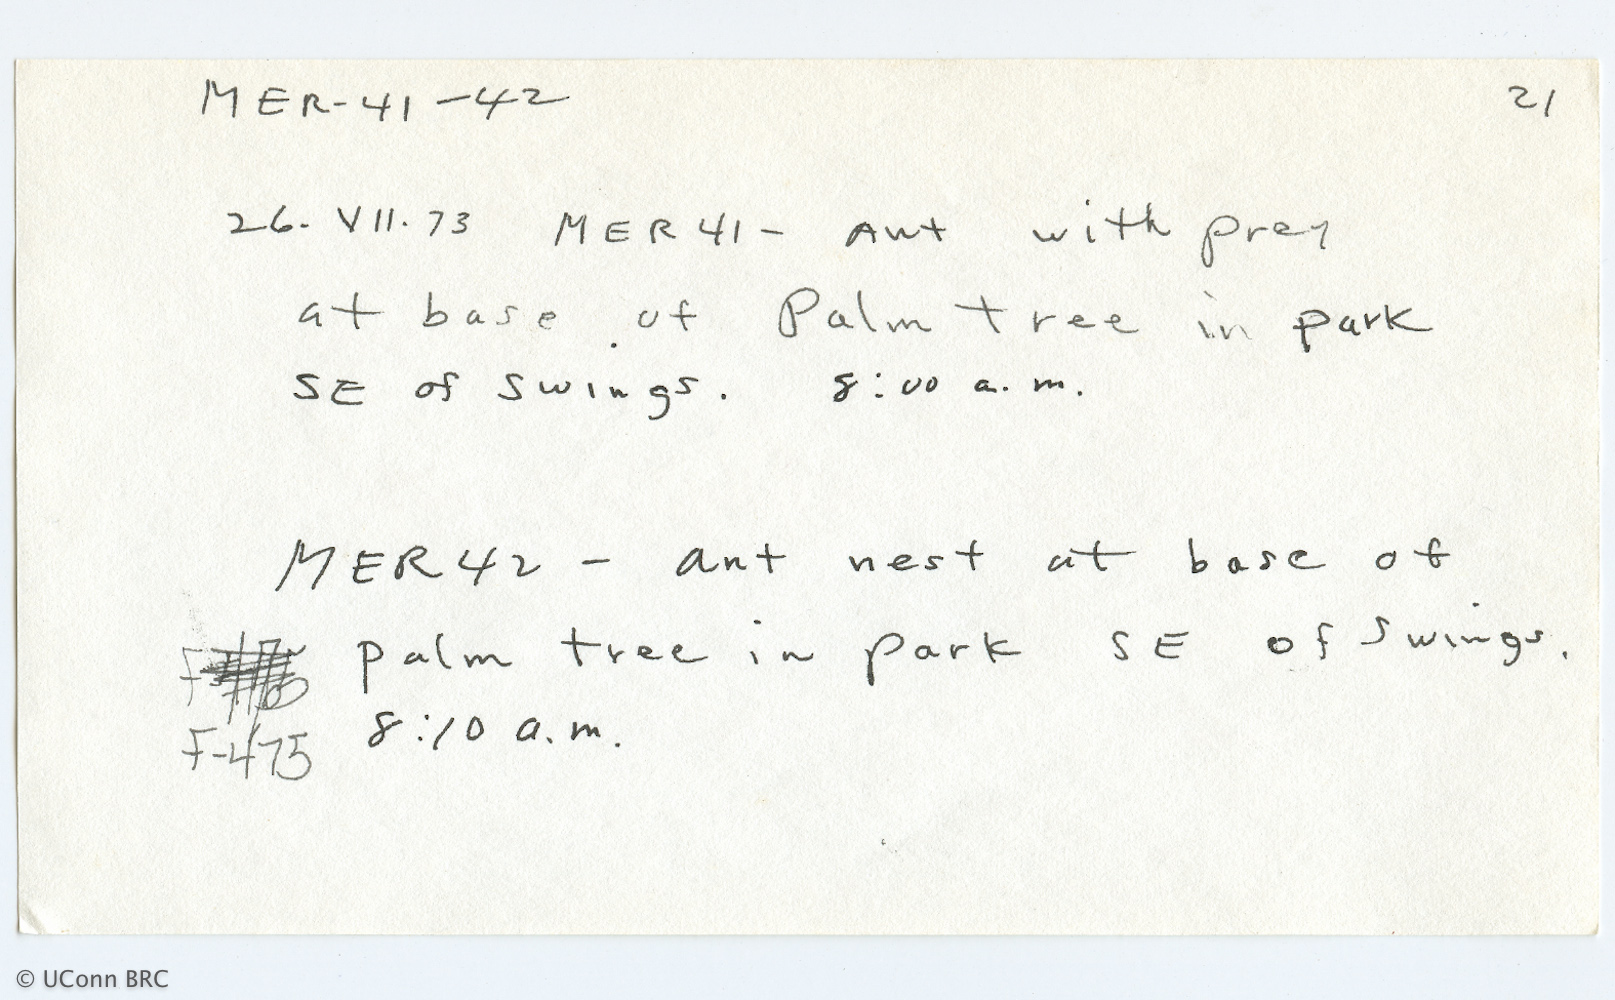 MER-41-42 21
26. VII. 73 MER 41 - Ant with prey
at base of Palm tree in park
SE of swings. 8:00 a.m.
MER 42 - ant nest at base of
palm tree in park SE of swings.
8:10 a.m.
F-475
© UConn BRC